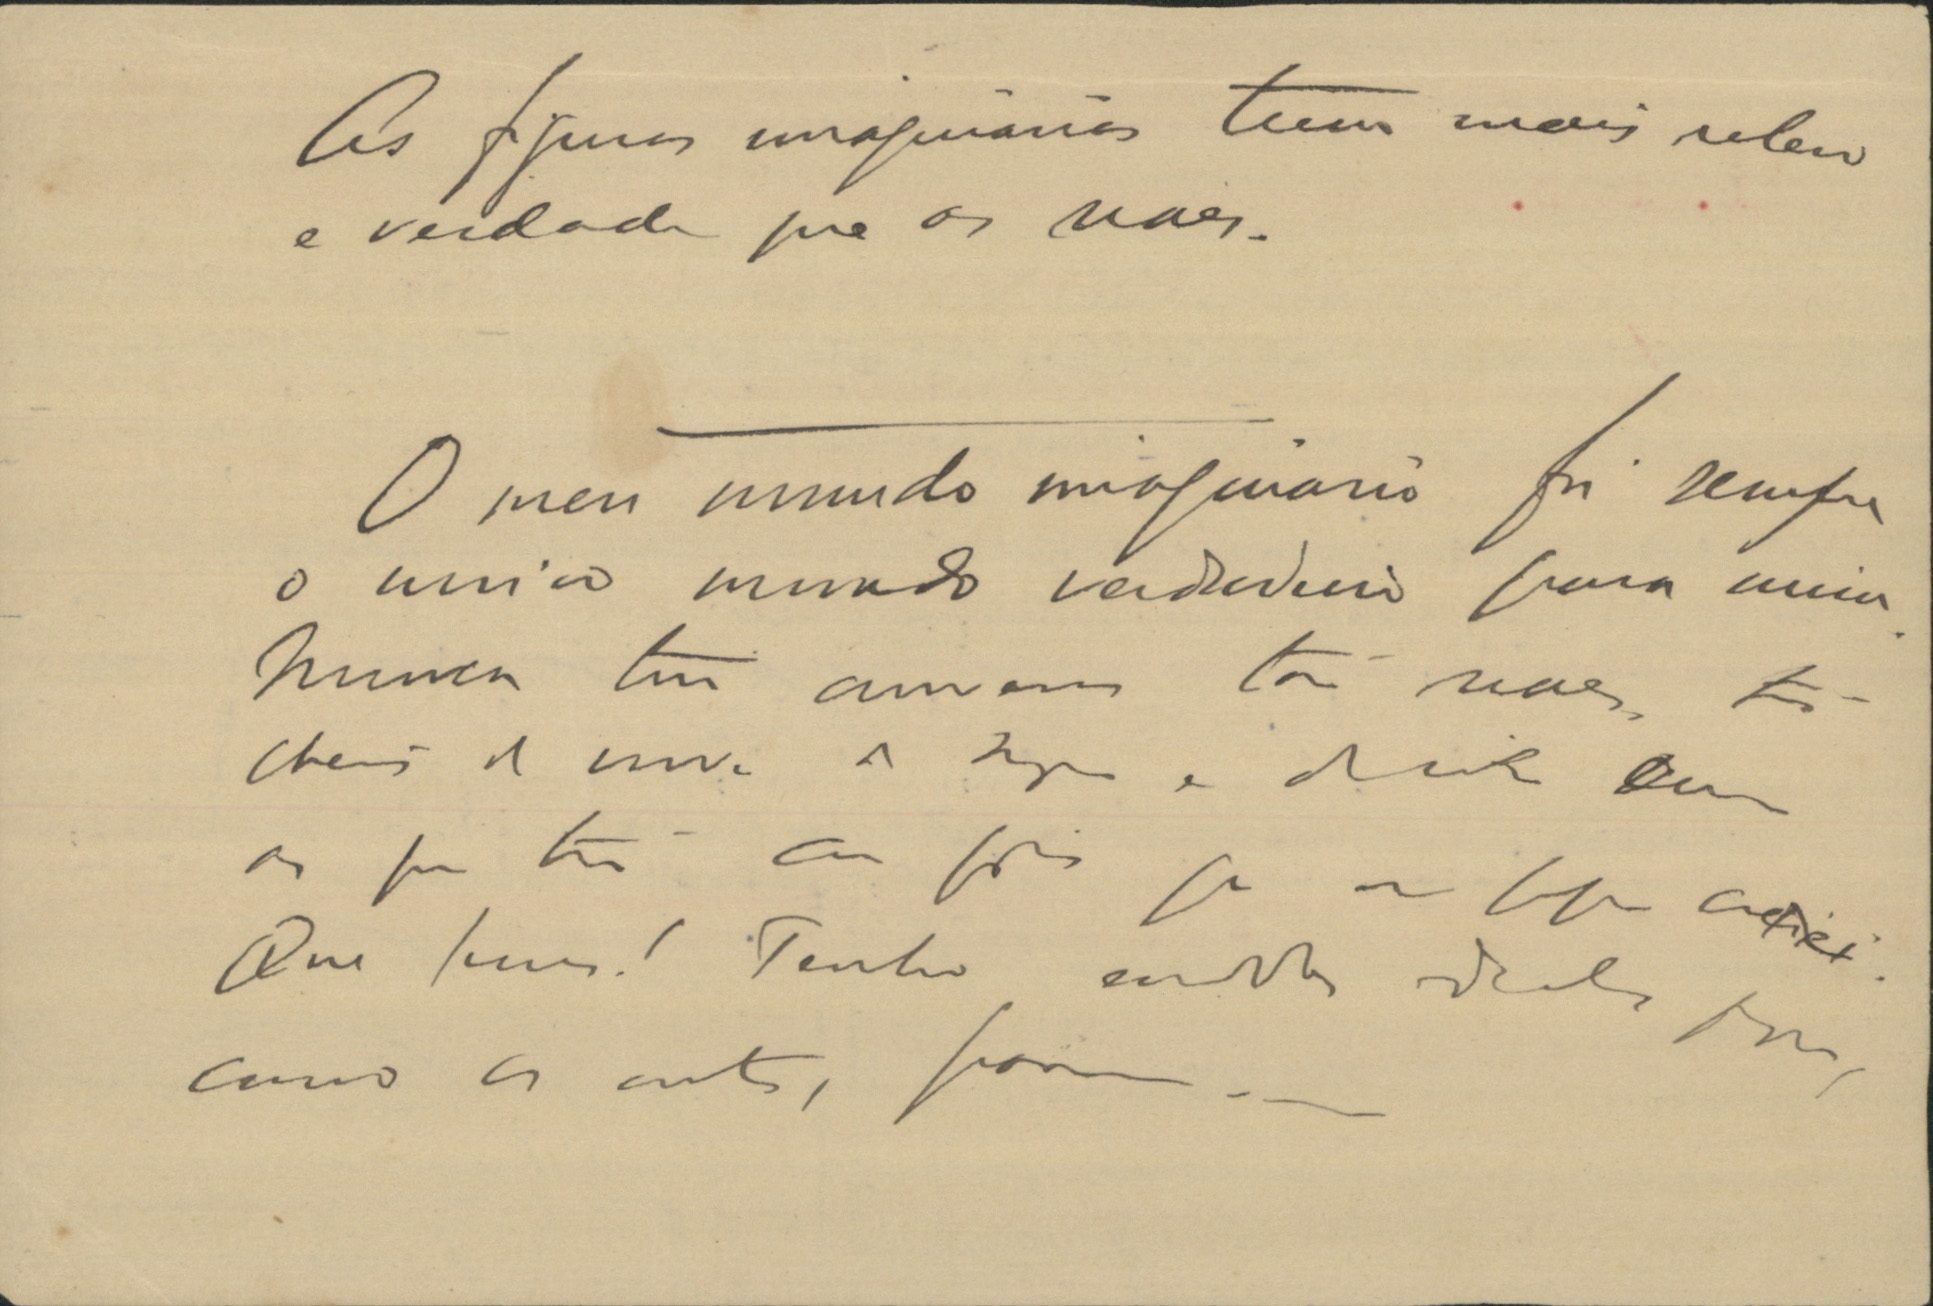 As figuras imaginarias teem mais relevo
e verdade que as reaes.
O meu mundo imaginario foi sempre
o unico mundo verdadeiro para mim.
Nunca tive amores tão reaes, tão
cheios de verve de sangue e de vida como
os que tive com figuras que eu proprio criei.
Que pena! Tenho saudades d'elles porque,
como os outros, passam...